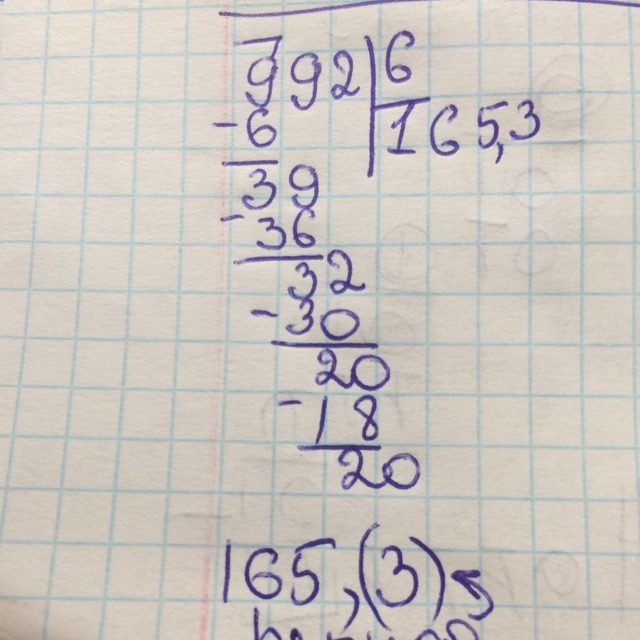 992 6
-6 165,3
39
-36
32
-30
20
-18
20
165,(3)